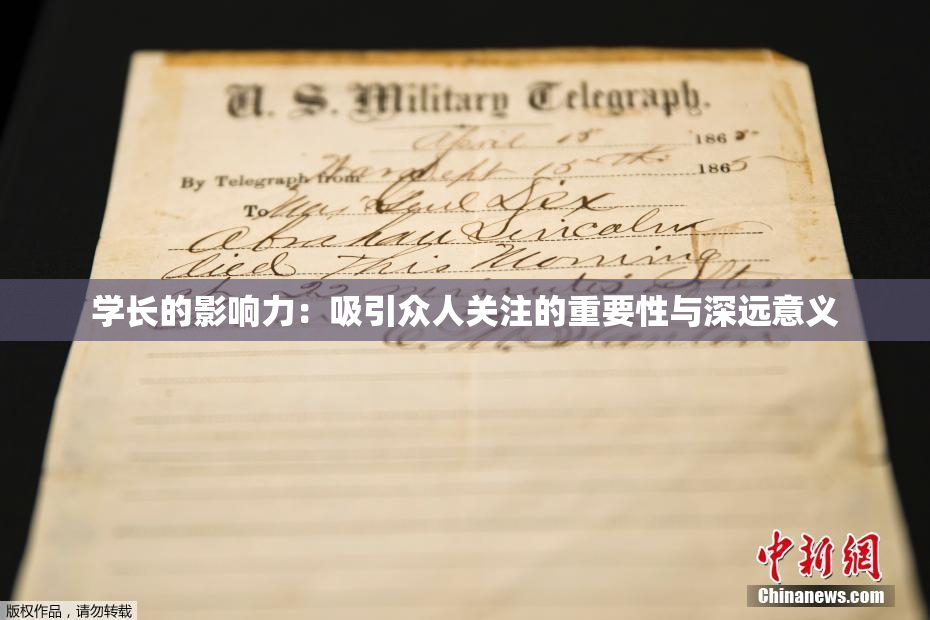 U. S. Military Telegraph.
April 15 1865
By Telegraph from War Dept 15th 1865
To Maj Genl Dix
Abraham Lincoln
died This Morning
at 22 minutes after
学长的影响力：吸引众人关注的重要性与深远意义
E. M. Stanton
中新網
Chinanews.com
版权作品，请勿转载